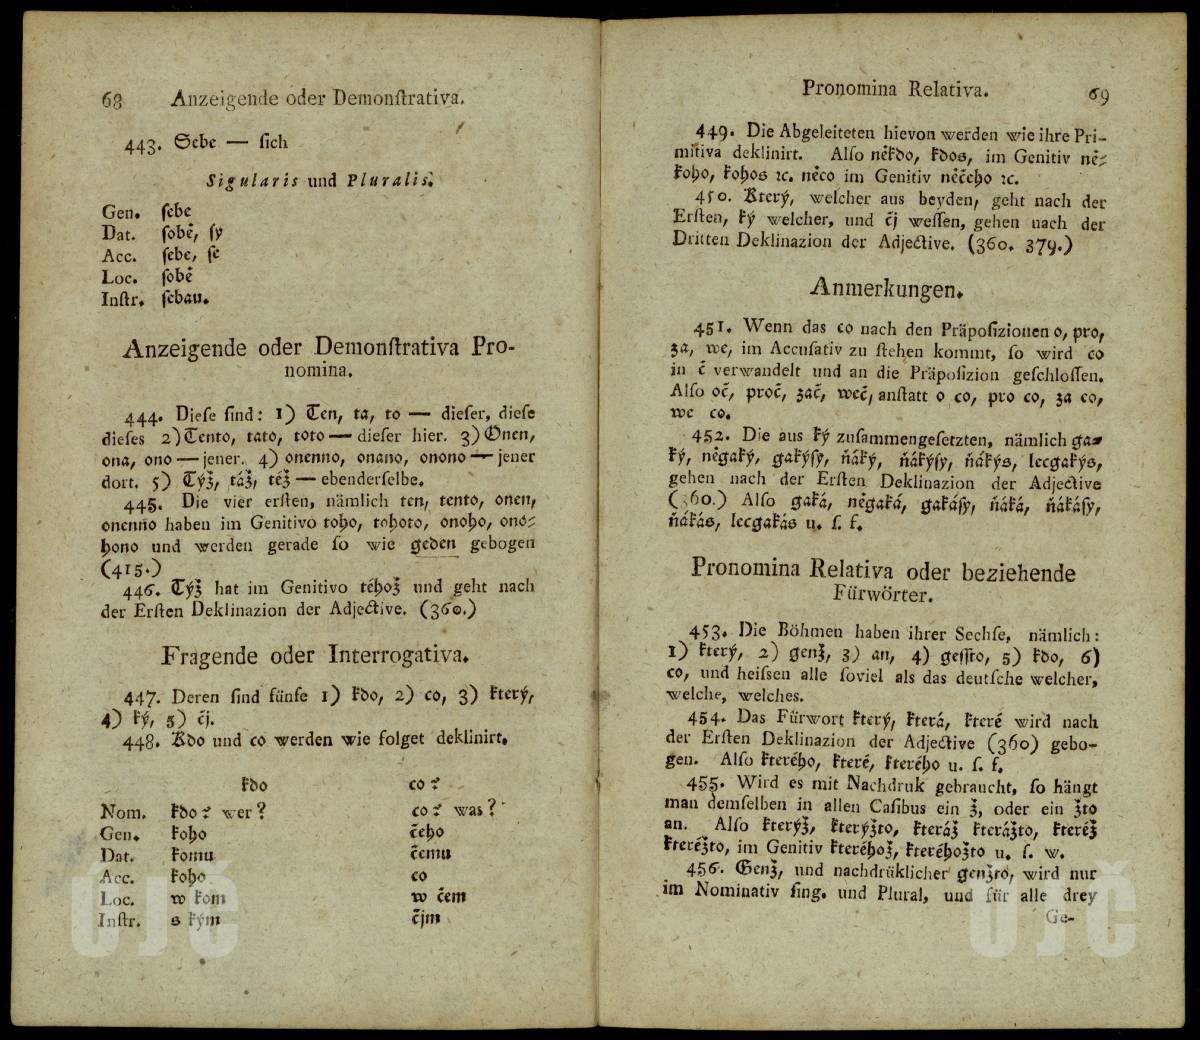 68 Anzeigende oder Demonſtrativa.
443. Sebe — ſich
Sigularis und Pluralis.
Gen. ſebe
Dat. ſobě, ſy
Acc. ſebe, ſe
Loc. ſobě
Inſtr. ſebau.
Anzeigende oder Demonſtrativa Pro-
nomina.
444. Dieſe ſind: 1) Ten, ta, to — dieſer, dieſe
dieſes 2) Tento, tato, toto — dieſer hier. 3) Onen,
ona, ono — jener. 4) onenno, onano, onono — jener
dort. 5) Týž, táž, též — ebenderſelbe.
445. Die vier erſten, nämlich ten, tento, onen,
onenno haben im Genitivo toho, tohoto, onoho, ono-
hono und werden gerade ſo wie geden gebogen
(415.)
446. Týž hat im Genitivo téhož und geht nach
der Erſten Deklinazion der Adjective. (360.)
Fragende oder Interrogativa.
447. Deren ſind fünfe 1) kdo, 2) co, 3) který,
4) ký, 5) čj.
448. Kdo und co werden wie folget deklinirt.
kdo co?
Nom. kdo? wer? co? was?
Gen. koho čeho
Dat. komu čemu
Acc. koho co
Loc. w kom w čem
Inſtr. s kým čjm
Pronomina Relativa. 69
449. Die Abgeleiteten hievon werden wie ihre Pri-
mitiva deklinirt. Alſo někdo, kdos, im Genitiv ně-
koho, kohos ꝛc. něco im Genitiv něčeho ꝛc.
450. Který, welcher aus beyden, geht nach der
Erſten, ký welcher, und čj weſſen, gehen nach der
Dritten Deklinazion der Adjective. (360. 379.)
Anmerkungen.
451. Wenn das co nach den Präpoſizionen o, pro,
za, we, im Accuſativ zu ſtehen kommt, ſo wird co
in č verwandelt und an die Präpoſizion geſchloſſen.
Alſo oč, proč, zač, weč, anſtatt o co, pro co, za co,
we co.
452. Die aus ký zuſammengeſetzten, nämlich ga-
ký, něgaký, gakýſy, ňáký, ňákýſy, ňákýs, lecgakýs,
gehen nach der Erſten Deklinazion der Adjective
(360.) Alſo gaká, něgaká, gakáſy, ňáká, ňákáſy,
ňákás, lecgakás u. ſ. f.
Pronomina Relativa oder beziehende
Fürwörter.
453. Die Böhmen haben ihrer Sechſe, nämlich:
1) který, 2) genž, 3) an, 4) geſſto, 5) kdo, 6)
co, und heiſsen alle ſoviel als das deutſche welcher,
welche, welches.
454. Das Fürwort který, která, které wird nach
der Erſten Deklinazion der Adjective (360) gebo-
gen. Alſo kterého, které, kterého u. ſ. f.
455. Wird es mit Nachdruk gebraucht, ſo hängt
man demſelben in allen Caſibus ein ž, oder ein žto
an. Alſo kterýž, kterýžto, kteráž kterážto, kteréž
kteréžto, im Genitiv kteréhož, kteréhožto u. ſ. w.
456. Genž, und nachdrüklicher genžto, wird nur
im Nominativ ſing. und Plural, und für alle drey
Ge-
ÚJČ ÚJČ